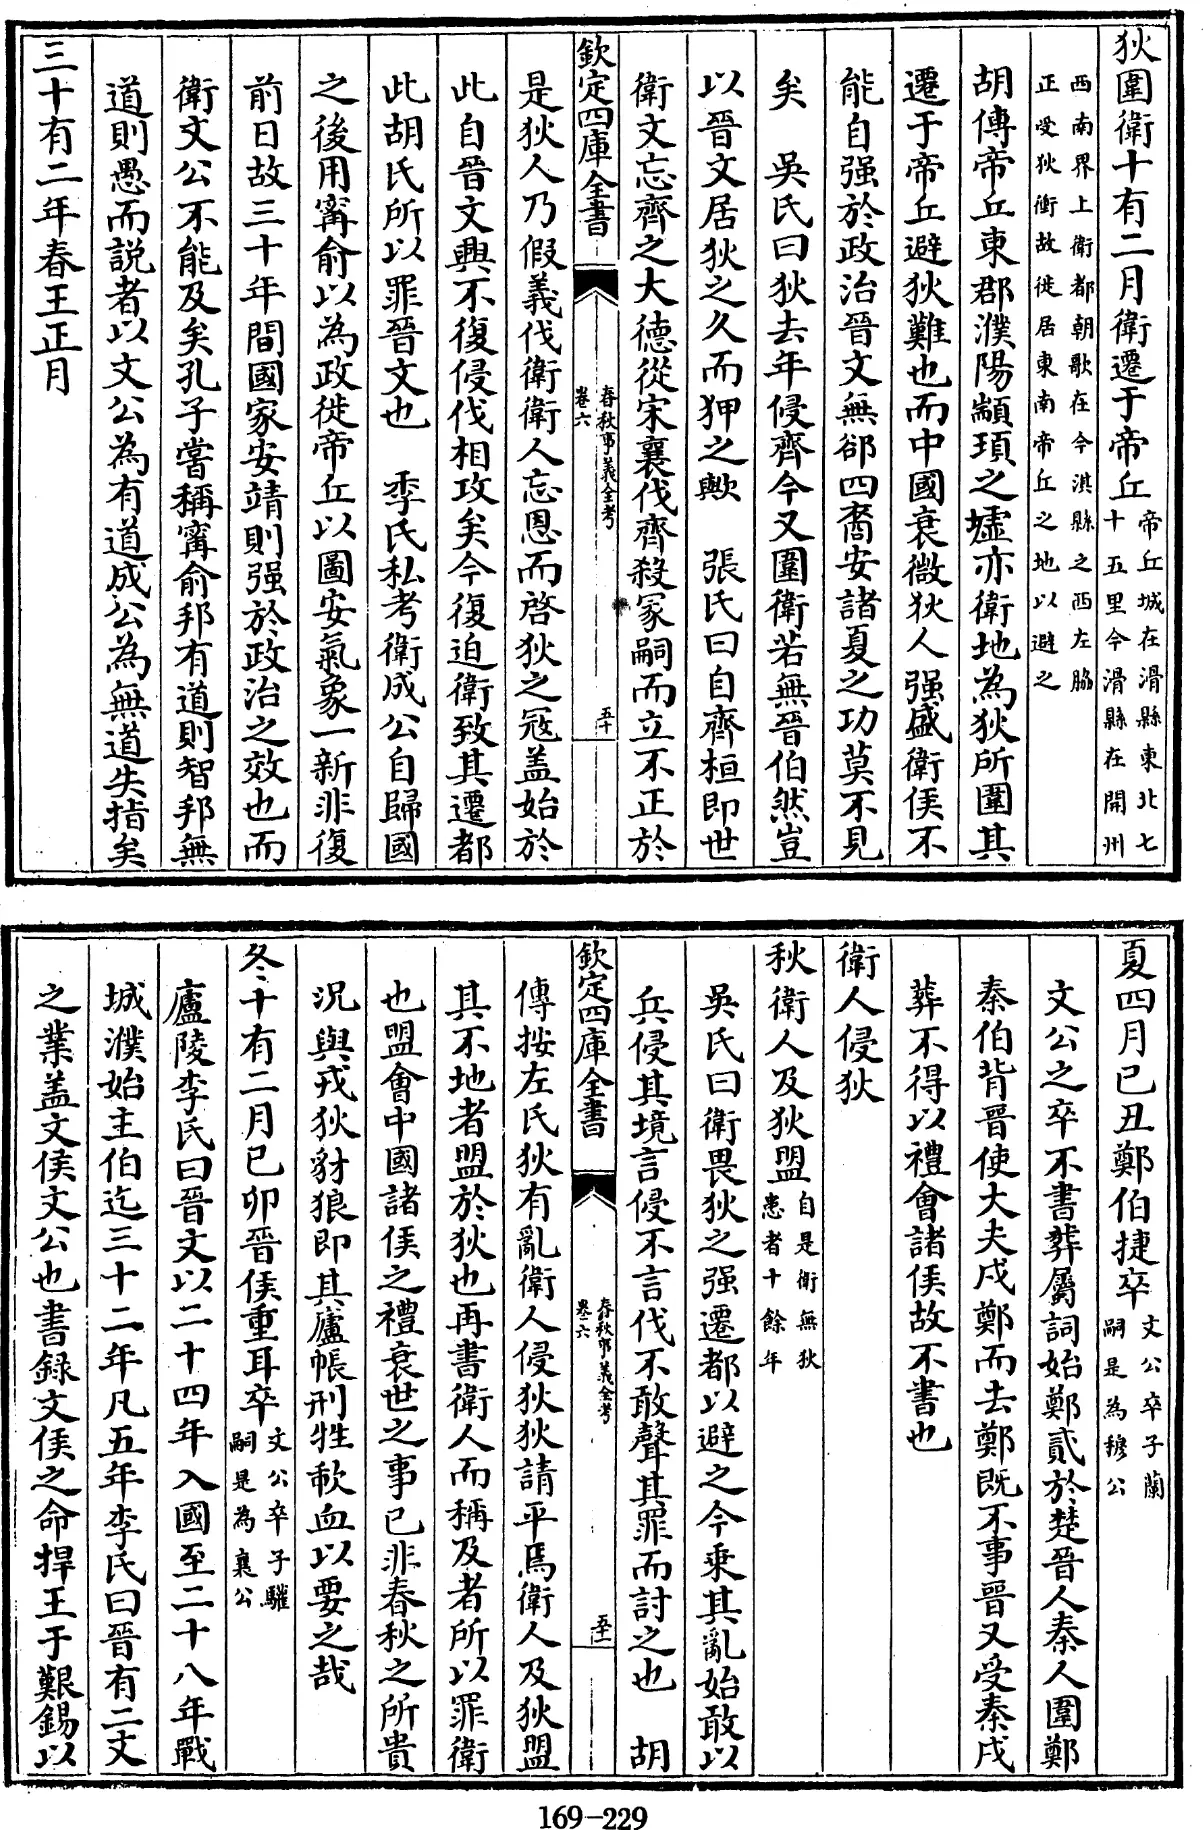 狄圍衛十有二月衛遷于帝丘帝丘城在滑縣東北七十五里今滑縣在開州
西南界上衛都朝歌在今淇縣之西左脇正受狄衝故徙居東南帝丘之地以避之
胡傳帝丘東郡濮陽顓頊之墟亦衛地為狄所圍其
遷于帝丘避狄難也而中國衰微狄人强盛衛侯不
能自强於政治晉文無郤四裔安諸夏之功莫不見
矣　吳氏曰狄去年侵齊今又圍衛若無晉伯然豈
以晉文居狄之久而狎之歟　張氏曰自齊桓即世
衛文忘齊之大德從宋襄伐齊殺冢嗣而立不正於
欽定四庫全書　春秋事義全考　卷六　五十
是狄人乃假義伐衛衛人忘恩而啓狄之冦盖始於
此自晉文興不復侵伐相攻矣今復迫衛致其遷都
此胡氏所以罪晉文也　季氏私考衛成公自歸國
之後用甯俞以為政徙帝丘以圖安氣象一新非復
前日故三十年間國家安靖則强於政治之效也而
衛文公不能及矣孔子嘗稱甯俞邦有道則智邦無
道則愚而説者以文公為有道成公為無道失指矣
三十有二年春王正月
夏四月已丑鄭伯捷卒文公卒子蘭嗣是為穆公
文公之卒不書葬屬詞始鄭貳於楚晉人秦人圍鄭
秦伯背晉使大夫戍鄭而去鄭既不事晉又受秦戍
葬不得以禮會諸侯故不書也
衛人侵狄
秋衛人及狄盟自是衛無狄患者十餘年
吳氏曰衛畏狄之强遷都以避之今乘其亂始敢以
兵侵其境言侵不言伐不敢聲其罪而討之也　胡
欽定四庫全書　春秋事義全考　卷六　五十一
傳按左氏狄有亂衛人侵狄狄請平焉衛人及狄盟
其不地者盟於狄也再書衛人而稱及者所以罪衛
也盟會中國諸侯之禮衰世之事已非春秋之所貴
況與戎狄豺狼即其廬帳刑牲歃血以要之哉
冬十有二月已卯晉侯重耳卒文公卒子驩嗣是為襄公
廬陵李氏曰晉文以二十四年入國至二十八年戰
城濮始主伯迄三十二年凡五年李氏曰晉有二文
之業盖文侯文公也書録文侯之命捍王于艱錫以
169-229